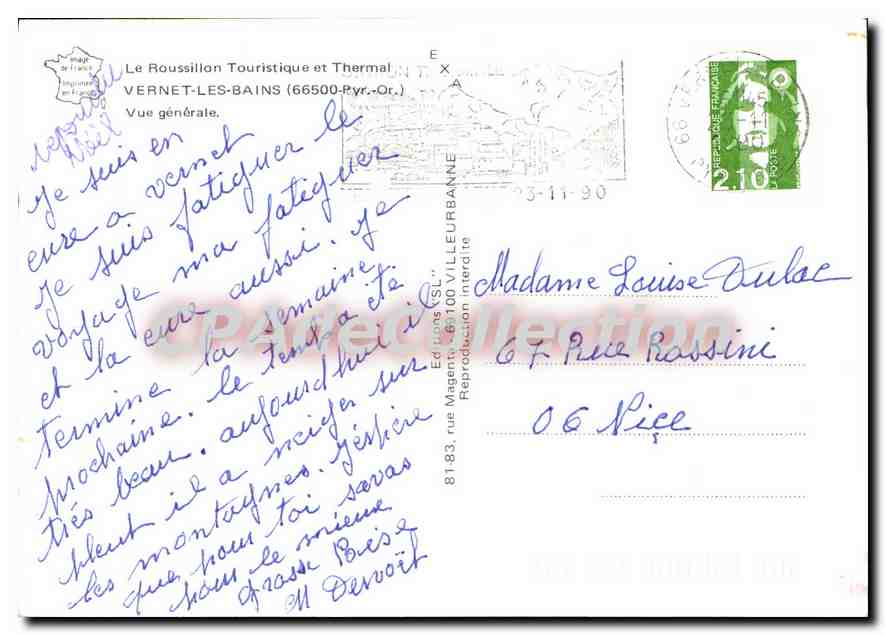 Image
de France
Imprimée
en France
Le Roussillon Touristique et Thermal
VERNET-LES-BAINS (66500-Pyr.-Or.)
Vue générale.
Noël
Je suis en
cure a vernet
je suis fatiguer le
voyage ma fatiguer
et la cure aussi. Je
termine la semaine
prochaine. le temps a été
très beau. aujourdhui il
pleut il a neiger sur
les montagnes. J'éspère
que pour toi savas
pour le mieux
grosse Bise
M
E
X
A
23-11-90
Editions "SL"
81-83, rue Magenta - 69100 VILLEURBANNE
Reproduction interdite
REPUBLIQUE FRANÇAISE
2.10
LA POSTE
66 VE
Madame Louise Dulac
67 Rue Rossini
06 Niçe
CPAdeCollection